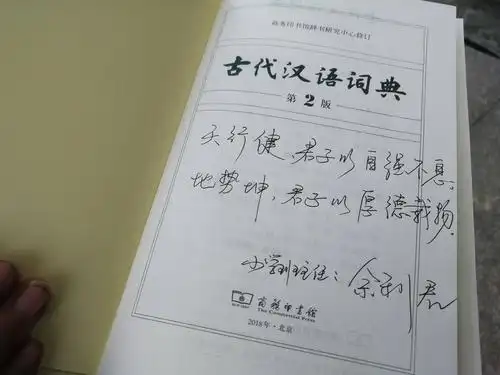 商务印书馆辞书研究中心修订
古代汉语词典
第2版
天行健、君子以自强不息。
地势坤、君子以厚德载物。
班主任：余利君
商务印书馆
The Commercial Press
2018年·北京